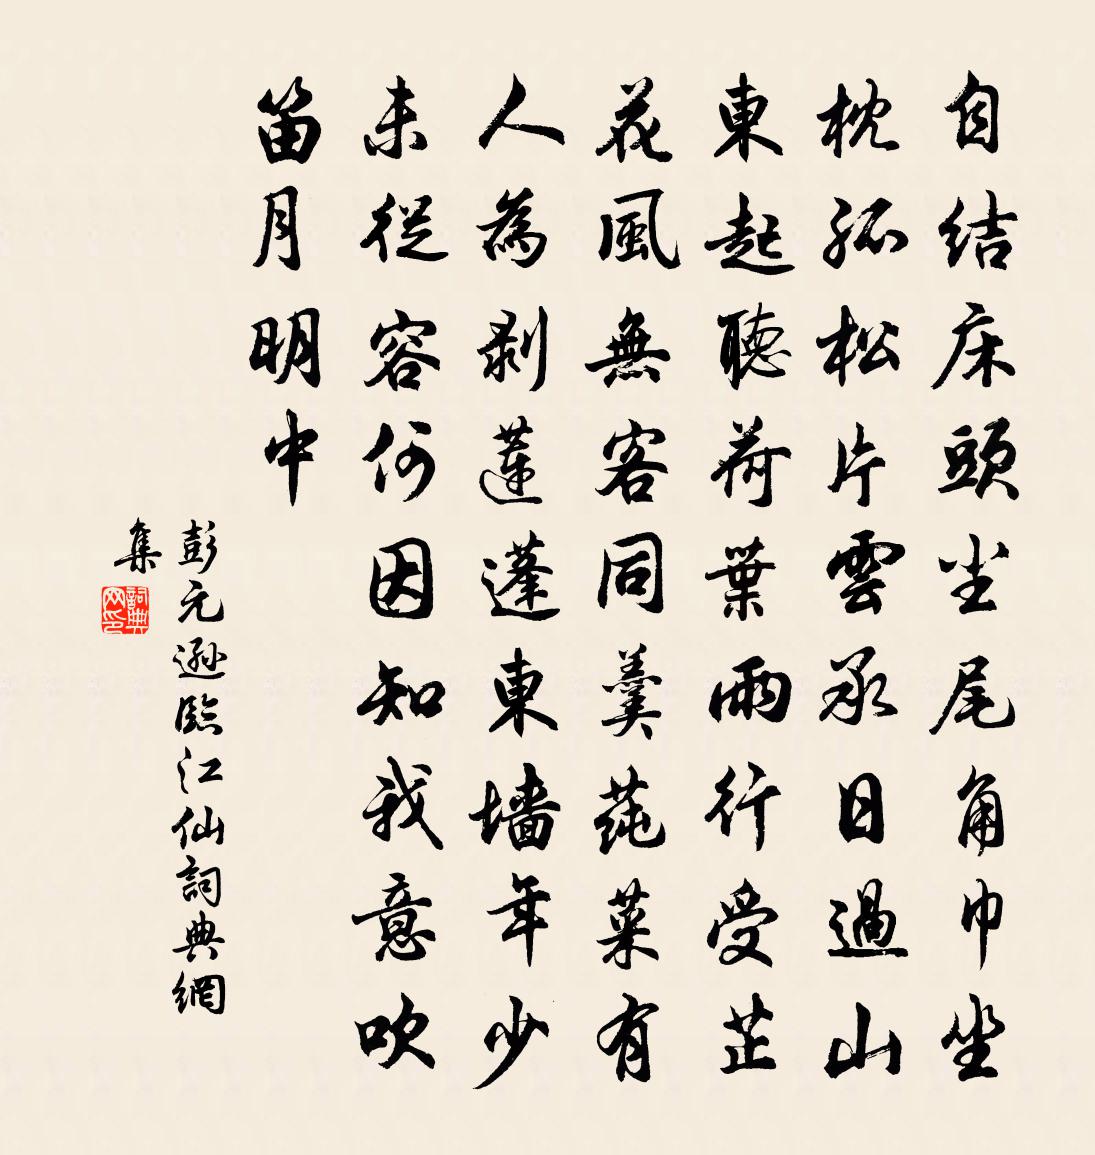 自結床頭塵尾角巾坐
枕孤松片雲承日過山
東起聽荷葉雨行受芷
花風無客同羹蒓菜有
人為剥蓮蓬東墻年少
未從容何因知我意吹
笛月明中
彭元遜臨江仙詞典網
集
詞典網印